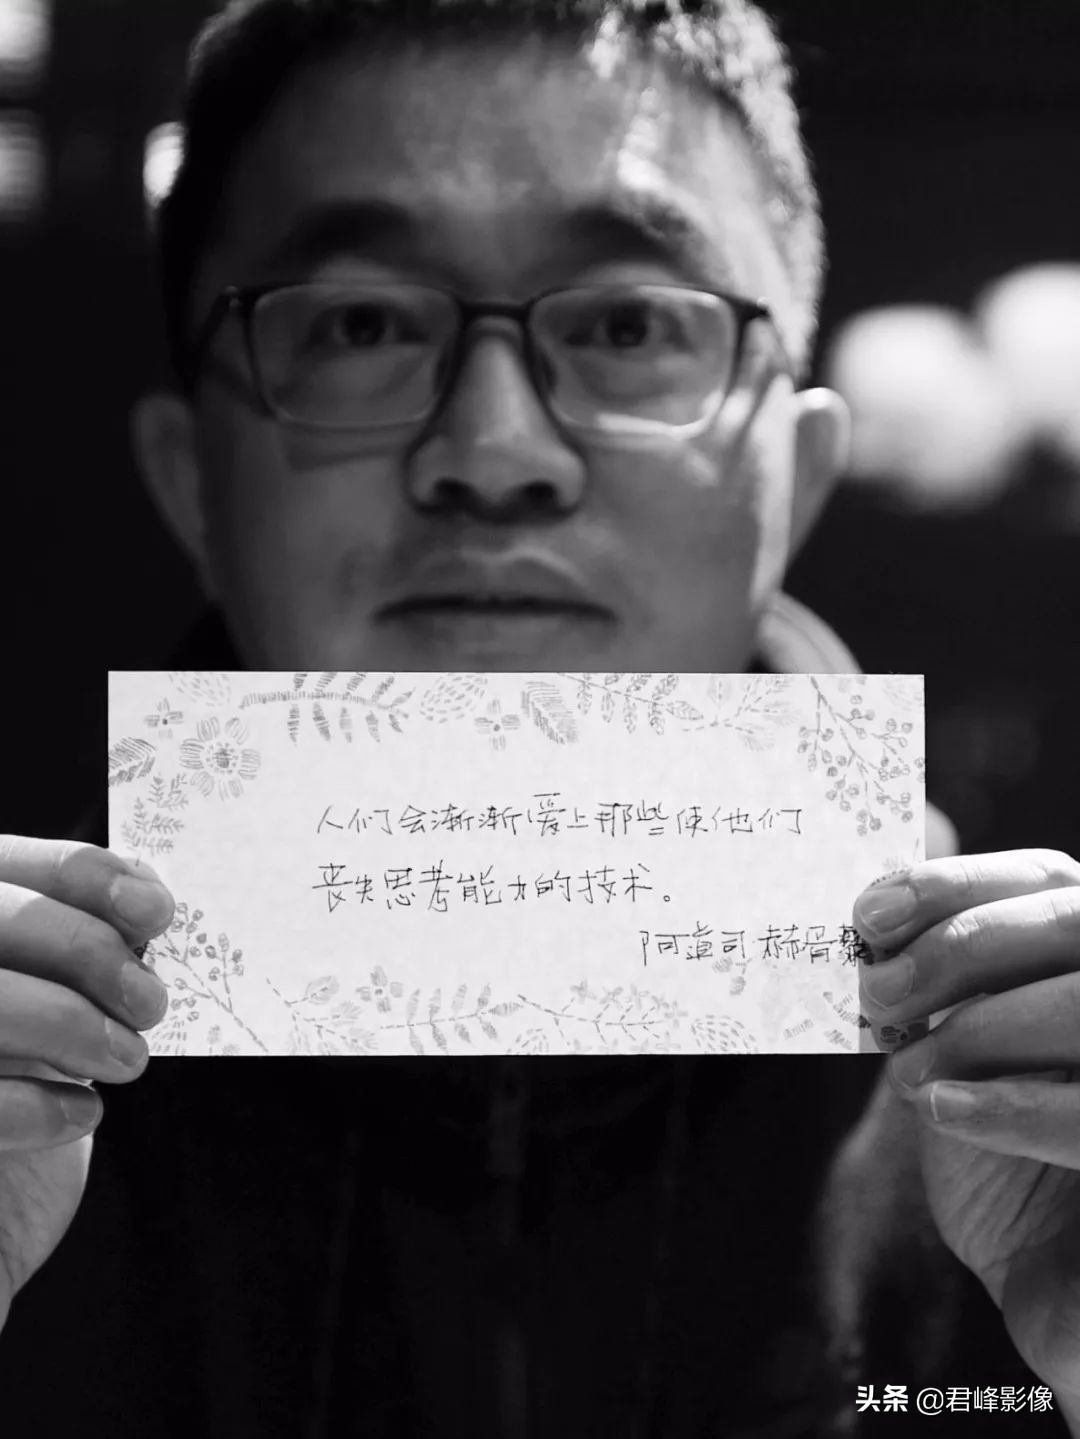 人们会渐渐爱上那些使他们
丧失思考能力的技术。
阿道司·赫胥黎
头条 @君峰影像